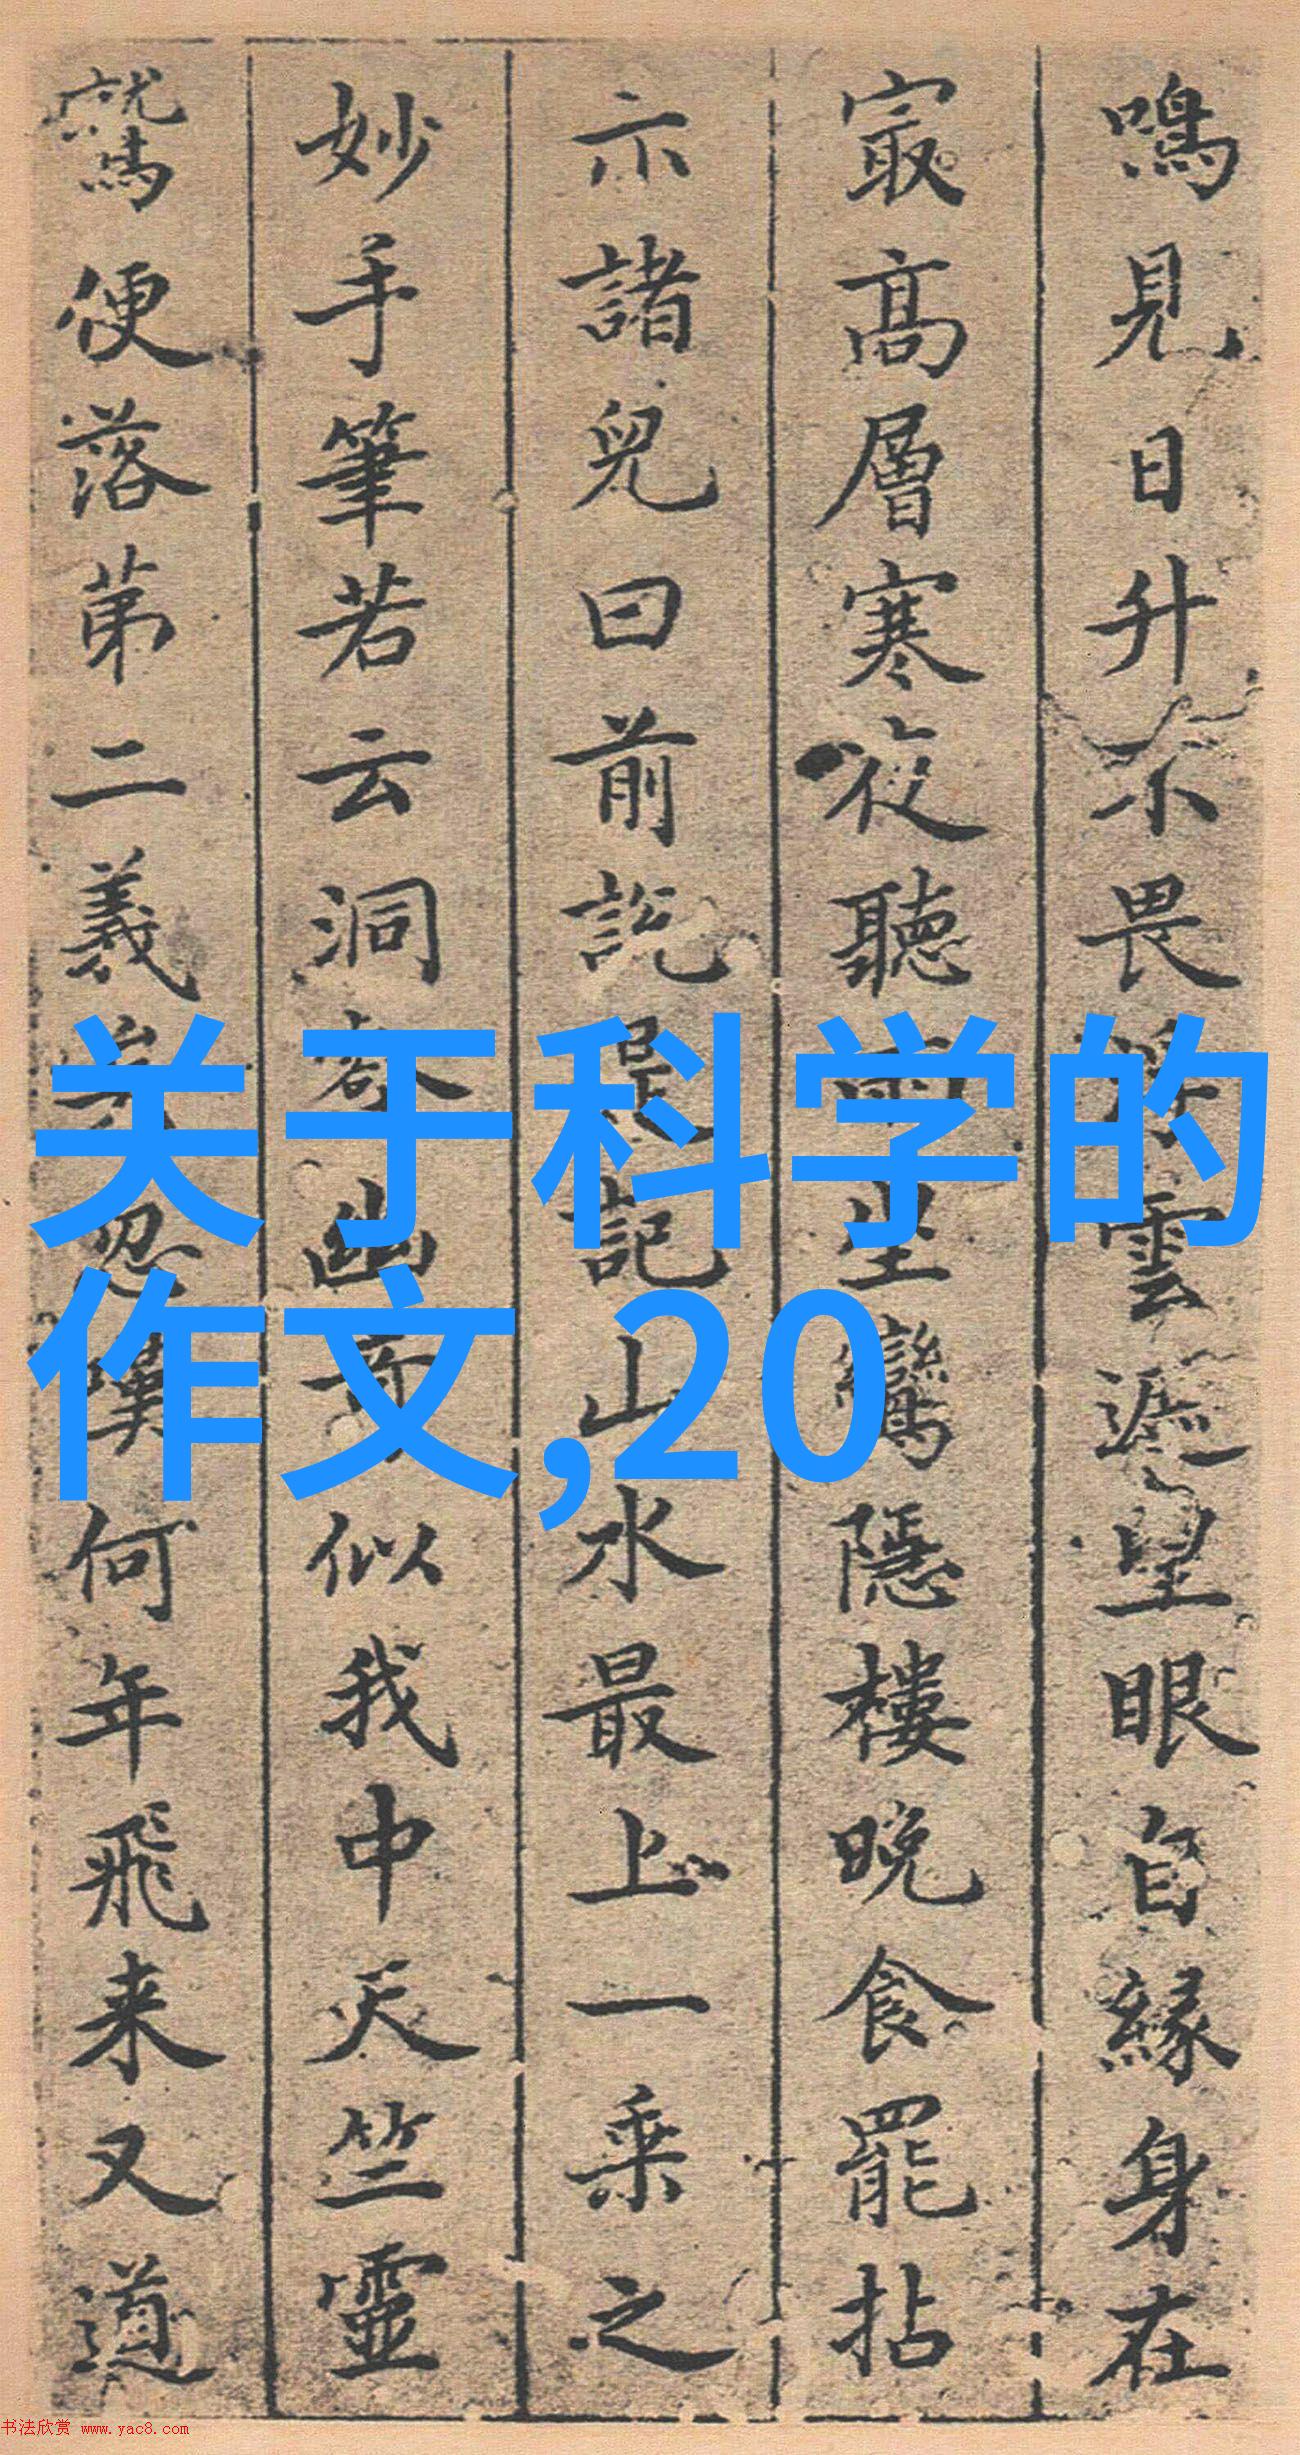 鳴見日升不畏浮雲遮望眼自緣身在
㝡高層寒夜聽雨坐鸞隱樓晚食罷拈
示諸兒曰前説記山水最上一乘之
妙手筆若云洞壑幽奇似我中天竺靈
鷲便落第二義矣忽嘆何年飛来又道
关于科学的
作文,20
书法欣赏 www.yac8.com